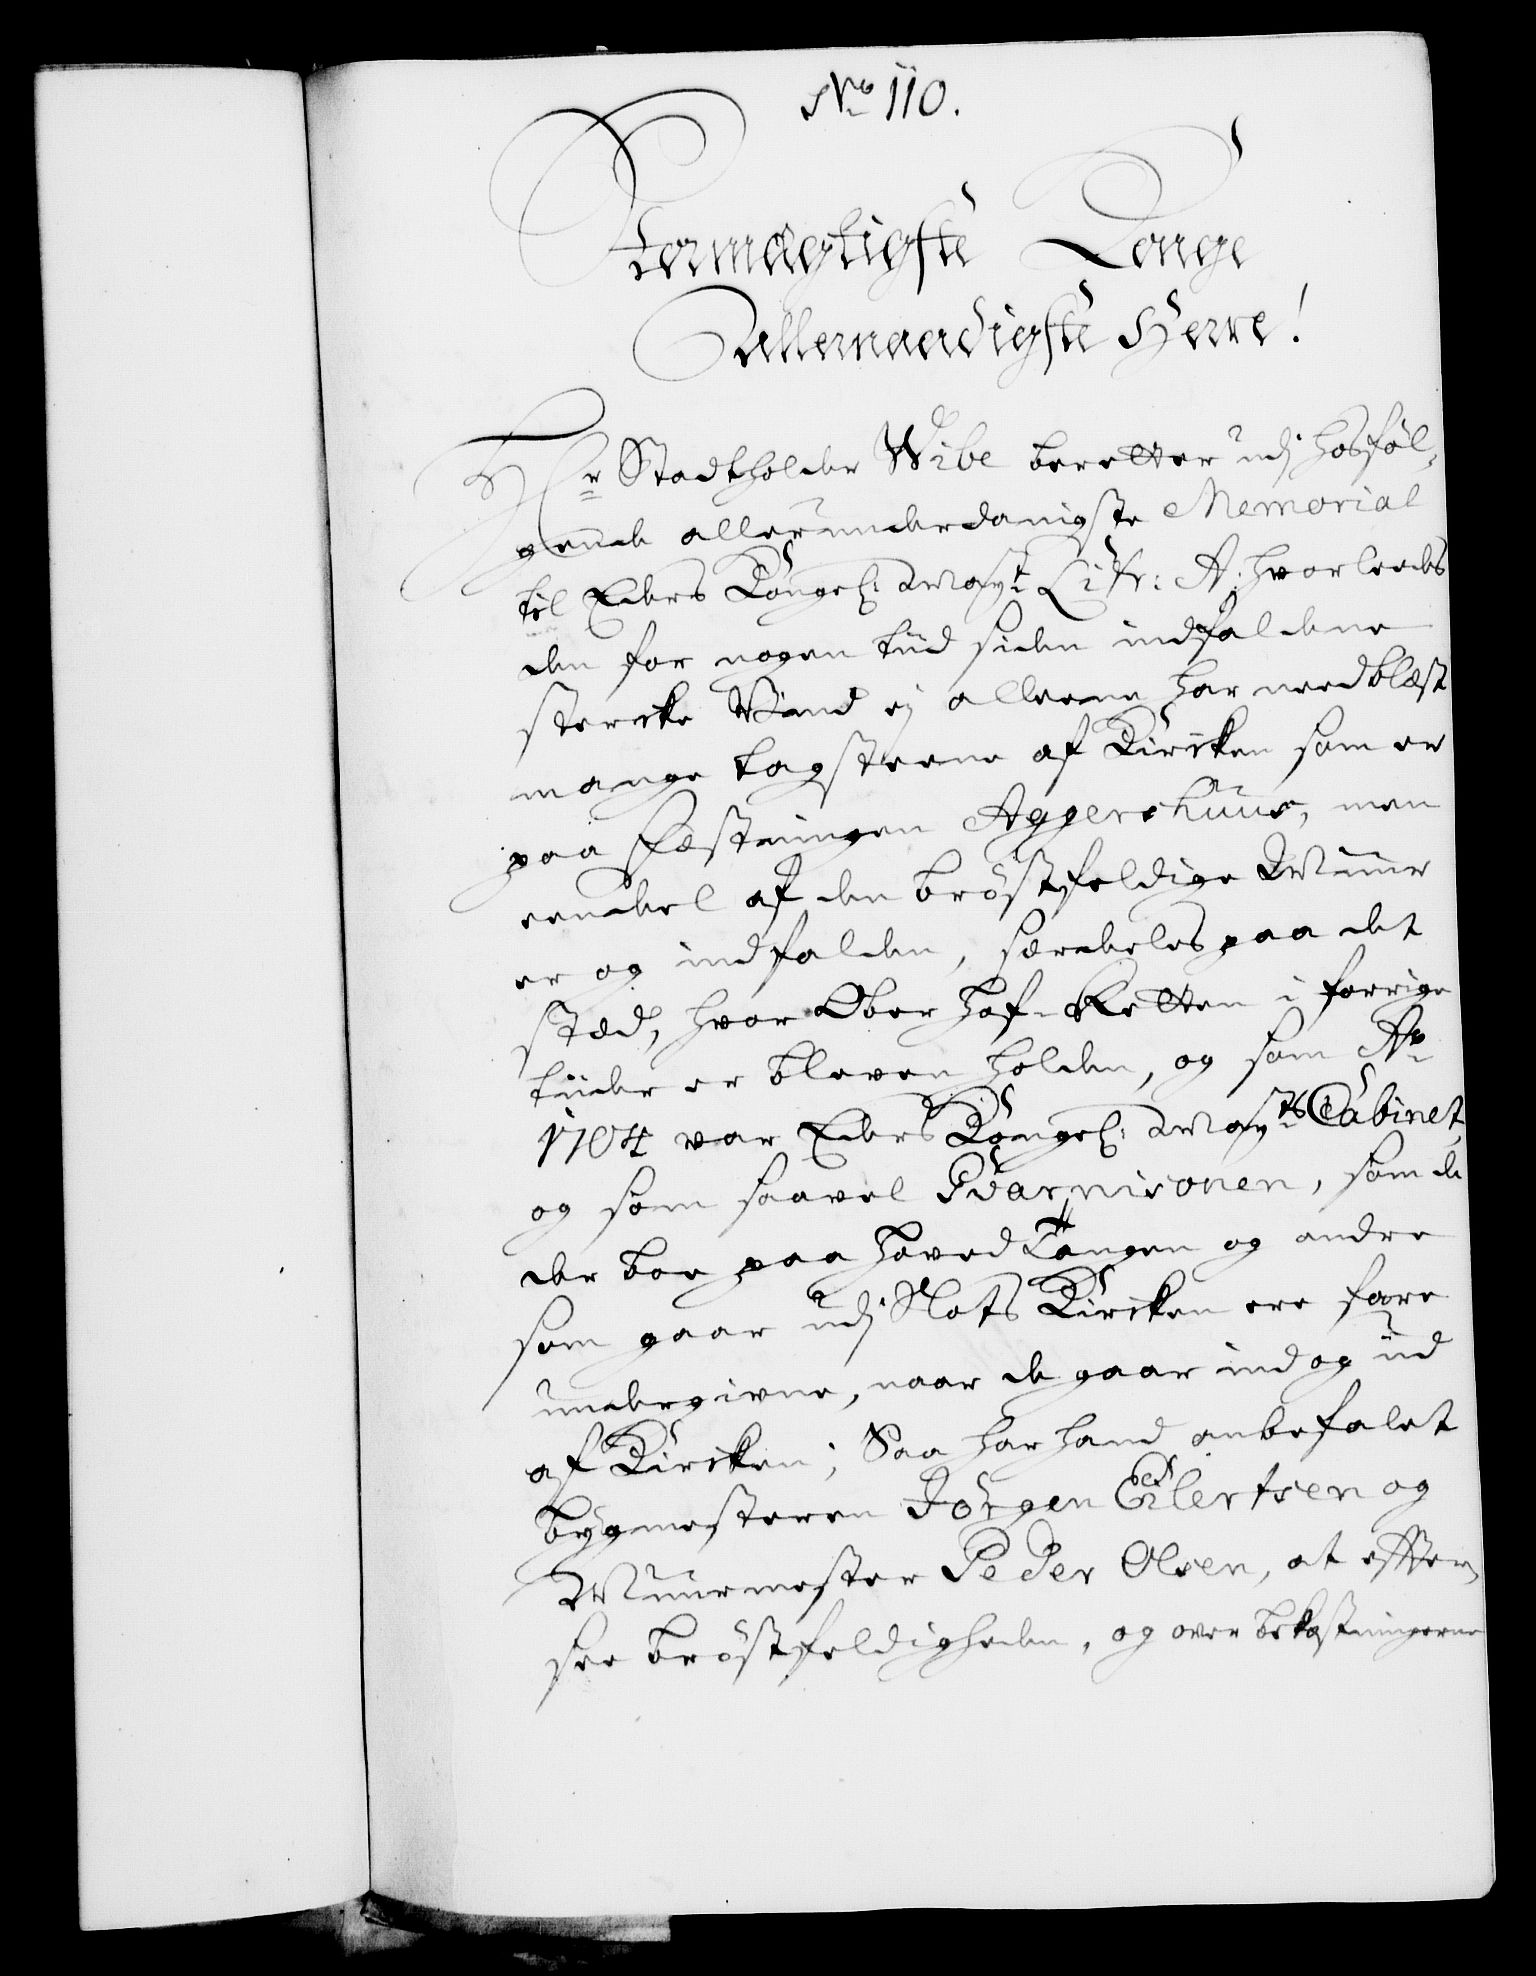 No 110.
Stormægtigste Konge
Allernaadigste Herre!
Hr Stadtholder Wibe beretter udj hosföl-
gende allerunderdanigste Memorial
til Eders Kongel: Mayt Litr: A. hvorleedes
den for nogen tiid siden indfaldene
stercke Vind ej alleene har needblæst
mange tagsteene af Kircken som er
paa Fæstningen Aggershuus, men
eendeel af den bröstfeldige Muur
er og indfalden, særdeles paa det
stæd, hvor Ober Hof-Retten i forrige
tiider er bleven holden, og som Ao
1704 var Eders Kongel: Mayts Cabinet,
og som saavel Guarnisonen, som de
der boe paa Hoved Tangen og andre
som gaar udj Slots Kircken ere fare
undergivne, naar de gaar ind og ud
af Kircken; Saa har hand anbefalet
bygmesteren Jörgen Eilertsen og
Muurmester Peder Olsen, at efter-
see bröstfeldigheden, og over bekostningerne